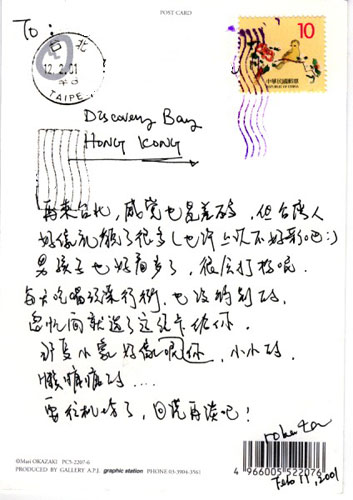 POST CARD
To:
台北
12.2.01
TAIPEI
10
中華民國郵票
REPUBLIC OF CHINA
Discovery Bay
HONG KONG
再來台北，感覺也是差不多，但台灣人
好像礼貌了很多（也许上次不好彩吧:)
男孩子也好看多了，很会打扮呢。
每天吃喝玩樂行街，也没特别的，
那隻小象好像呢你，小小的，
懒懒的....
要往机場了，回港再谈吧！
roberta
Feb 11, 2001
©Mari OKAZAKI PC5-2207-6
PRODUCED BY GALLERY A.P.J. graphic station PHONE 03-3904-3561
4 966005 522076